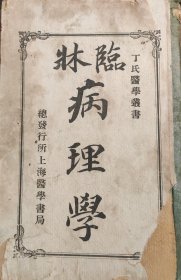 丁氏醫學叢書
臨牀
病理學
總發行所上海醫學書局